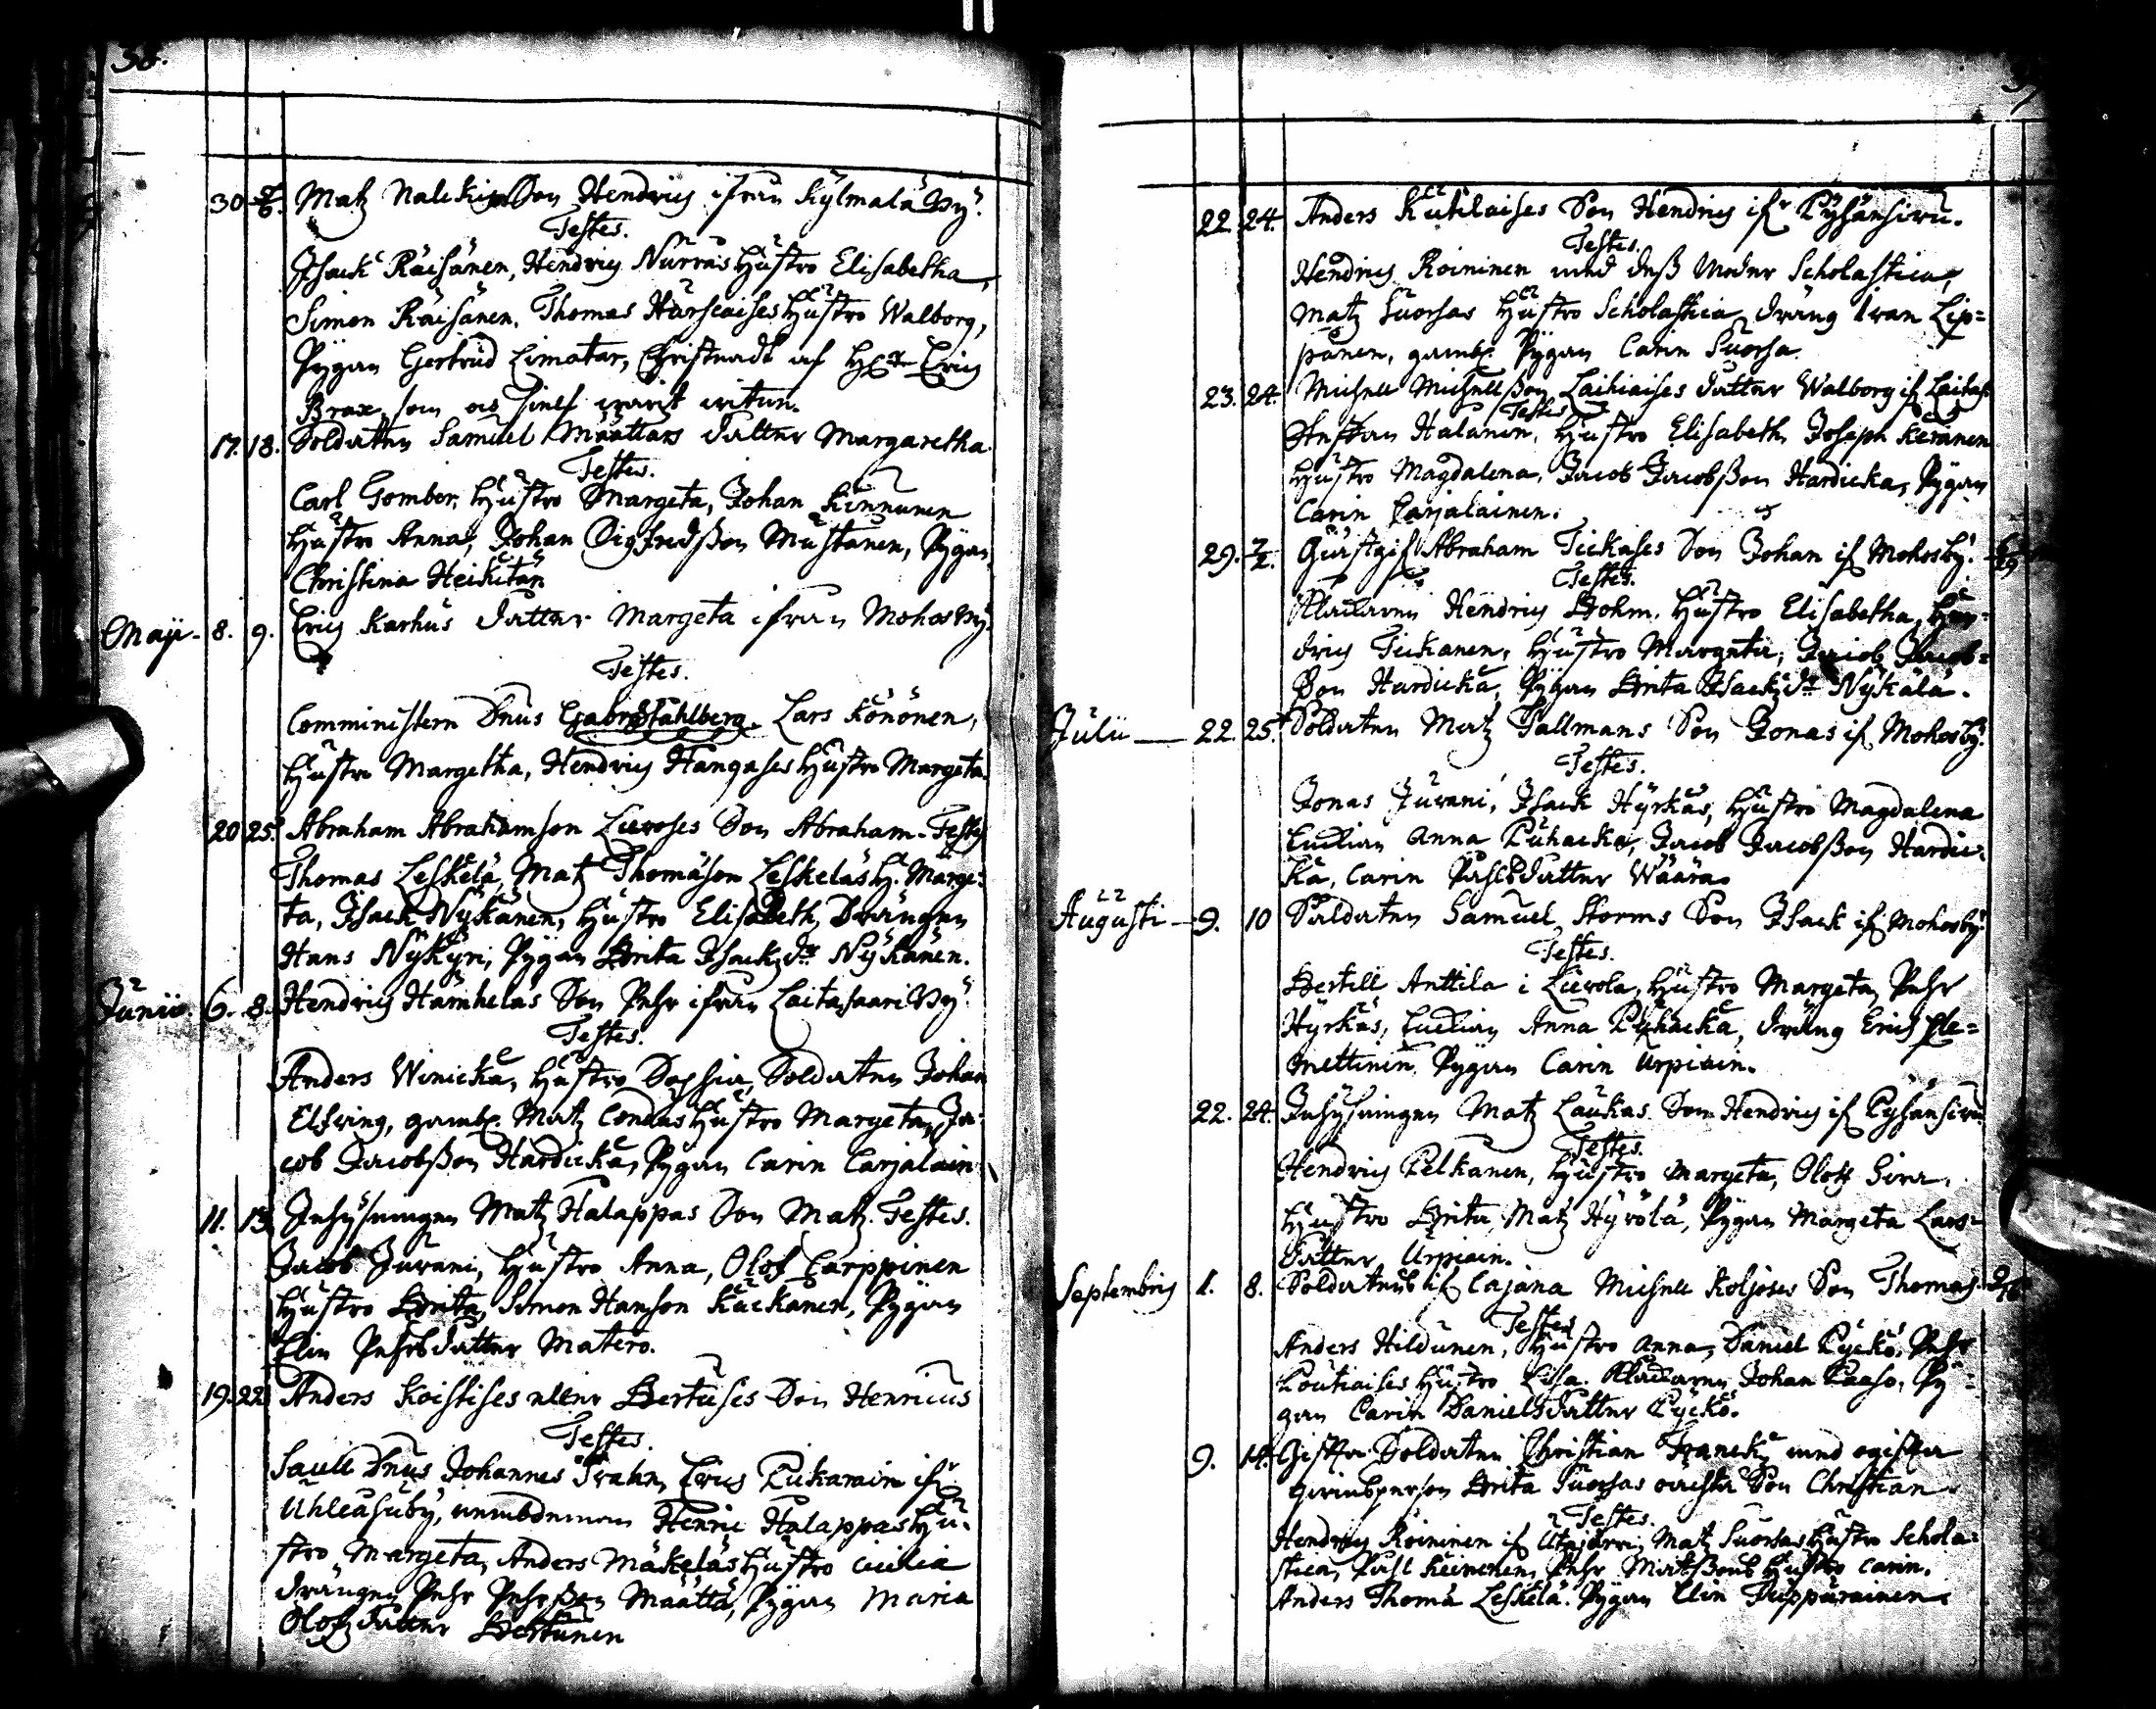 38.
30 2/6. Matz Nalikis Son Hendric ifrån Kylmälä By.
Testes.
Isack Räisänen, Hendric Nurras Hustro Elisabetha,
Simon Räisänen, Thomas Hustro Walborg,
Pigan Gertrud Limatar, Christnadt af Erics
Brax, som
17. 18. Soldaten Samuel Määttäs dotter Margaretha.
Testes.
Carl Gomber, Hustro Margeta, Johan Kinnunen
Hustro Anna, Johan Sigfredßon Mustanen, Pigan
Christina Heikitän
Maji - 8. 9. Eric Karhus dotter Margeta ifrån Mohosby.
Testes.
Comministern Dnus Gabr Ståhlberg. Lars Könönen,
Hustro Margetha, Hendric Hangases Hustro Margeta.
20 25. Abraham Abrahamson Liwoses Son Abraham. Testes
Thomas Leskelä, Matz Thomäson Leskeläs H. Marge-
ta, Isack Nykänen, Hustro Elisabeth, Drängen
Hans Nykyri, Pigan Brita Isackz dr Nykänen.
Junii. 6. 8. Hendric Hämheläs Son Pehr ifrån Laitasaari By.
Testes.
Anders Winicka, Hustro Sophia, Soldaten Johan
Elfwing, Matz Hustro Margeta, Ja-
cob Jacobßon Hardicka, Pigan Carin Carjalain
11. 13. Inhysningen Matz Halappas Son Matz. Testes.
Jacob Juwani, Hustro Anna, Olof Carppinen
Hustro Brita, Simon Hanson Kückanen, Pigan
Elin Pehrsdotter Matero.
19. 22. Anders Koistises eller Bertuses Son Henricus
Testes.
Saull Dnus Johannes Frahn, Eric Pikarain ifr
Uhleåsuby, Henric Halappas Hu-
stro Margeta, Anders Mäkeläs Hustro Cicilia
drängen Pehr Pehrßon Määttä, Pigan Maria
Olofzdotter Bertunen
22. 24. Anders Kutilaises Son Hendric ifr Pyhänsiwu.
Testes.
Hendric Roininen med deß Moder Scholastica,
Matz Suorsas Hustro Scholastica, dräng Iwan Lip-
panen, Pigan Carin Suorsa.
23. 24. Michell Michellßon Laikiaises dotter Walborg if Laitas.
Testes
Staffan Halanen, Hustro Elisabeth, Joseph Keränen
Hustro Magdalena, Jacob Jacobßon Hardicka, Pigan
Carin Carjalainen.
29. 7/2. Gästgif Abraham Tickases Son Johan if Mohosby.
Testes.
Klockaren Hendric Bohm. Hustro Elisabetha, Hen-
dric Tickanen, Hustro Margeta, Jacob Jacob-
Son Hardicka, Pigan Brita Isackz dr Nykälä.
Julii 22. 25. Soldaten Matz Tallmans Son Jonas if Mohosby.
Testes.
Jonas Juwani, Isack Hyrkäs, Hustro Magdalena
Anna Puhacka, Jacob Jacobßon Hardic-
ka, Carin Påhlsdotter Wäära.
Augusti - 9. 10 Soldaten Samuel Storms Son Isack if Mohosby.
Testes.
Bertill Anttila i Liwola, Hustro Margeta, Pehr
Hyrkäs, Anna Puhacka, dräng Erich Cle-
mettinen, Pigan Carin Urpiain.
22. 24. Inhysningen Matz Laukas Son Hendric if Pyhänsiwu.
Testes.
Hendric Pelkanen, Hustro Margeta, Olof Sirra,
Hustro Brita, Matz Hyrölä, Pigan Margeta Lars-
dotter Urpiain.
Septembris 1. 8. Soldatens if Cajana Michell Koljoses Son Thomas.
Testes
Anders Hildunen, Hustro Anna, Daniel Pyckö, Pehr
Poutiaises Hustro Lisa. Klockaren Johan Paaso, Pi-
gan Carin Danielsdotter Pyckö.
9. 14. Gifta Soldaten Christian Franck med ogifta
Brita Suorsas oächta Son Christian
Testes.
Hendric Roininen if Utajärvi, Matz Suorsas Hustro Schola-
stica, Påhl Keinenen, Pehr Matzßons Hustro Carin.
Anders Thomä Leskelä. Pigan Elin Tuppurainen.